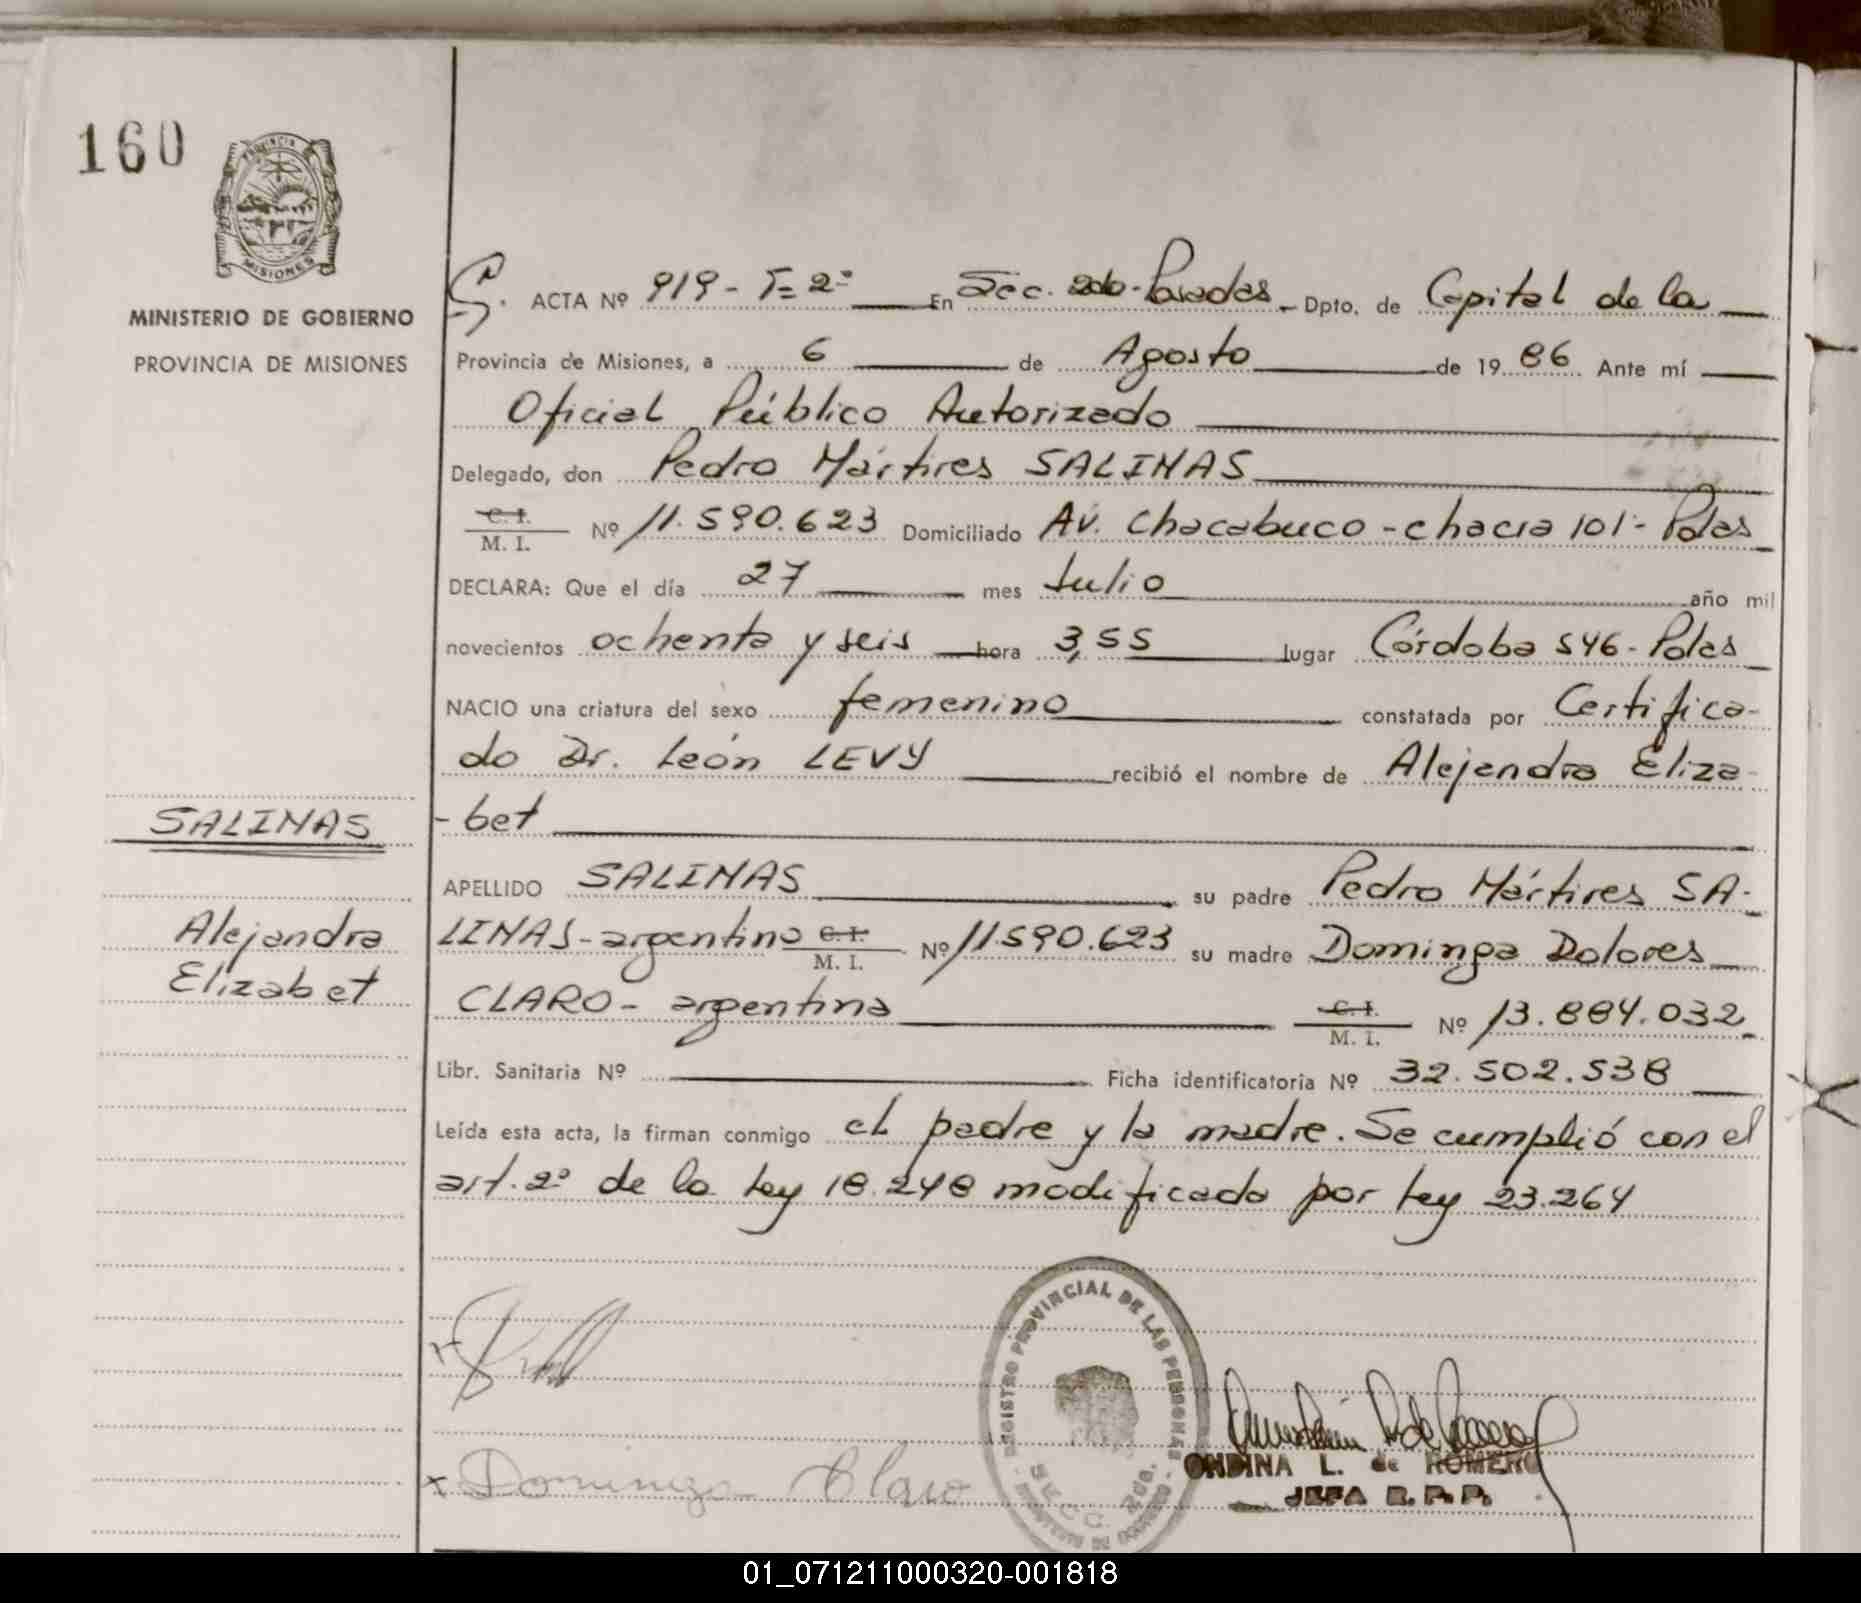 160
PROVINCIA
MISIONES
MINISTERIO DE GOBIERNO
PROVINCIA DE MISIONES
S. ACTA Nº 919 - T= 2º En Sec. 2do - Posadas Dpto. de Capital de la
Provincia de Misiones, a 6 de Agosto de 19 86 Ante mí
Oficial Público Autorizado
Delegado, don Pedro Mártires SALINAS
C. I.
M. I. Nº 11.590.623 Domiciliado Av. Chacabuco - chacra 101 - Pdas
DECLARA: Que el día 27 mes Julio año mil
novecientos ochenta y seis hora 3,55 lugar Córdoba 546 - Pdas
NACIO una criatura del sexo femenino constatada por Certifica-
do Dr. León LEVY recibió el nombre de Alejandra Eliza-
-bet
SALINAS
APELLIDO SALINAS su padre Pedro Mártires SA-
Alejandra
LINAS - argentino C. I. M. I. Nº 11.590.623 su madre Dominga Dolores
Elizabet
CLARO - argentina C. I. M. I. Nº 13.884.032
Libr. Sanitaria Nº Ficha identificatoria Nº 32.502.538
Leída esta acta, la firman conmigo el padre y la madre. Se cumplió con el
art. 2º de la ley 18.248 modificada por ley 23.264
REGISTRO PROVINCIAL DE LAS PERSONAS
SECC. 2da.
x Dominga Claro
ONDINA L. de ROMERO
JEFA R.P.P.
01_071211000320-001818